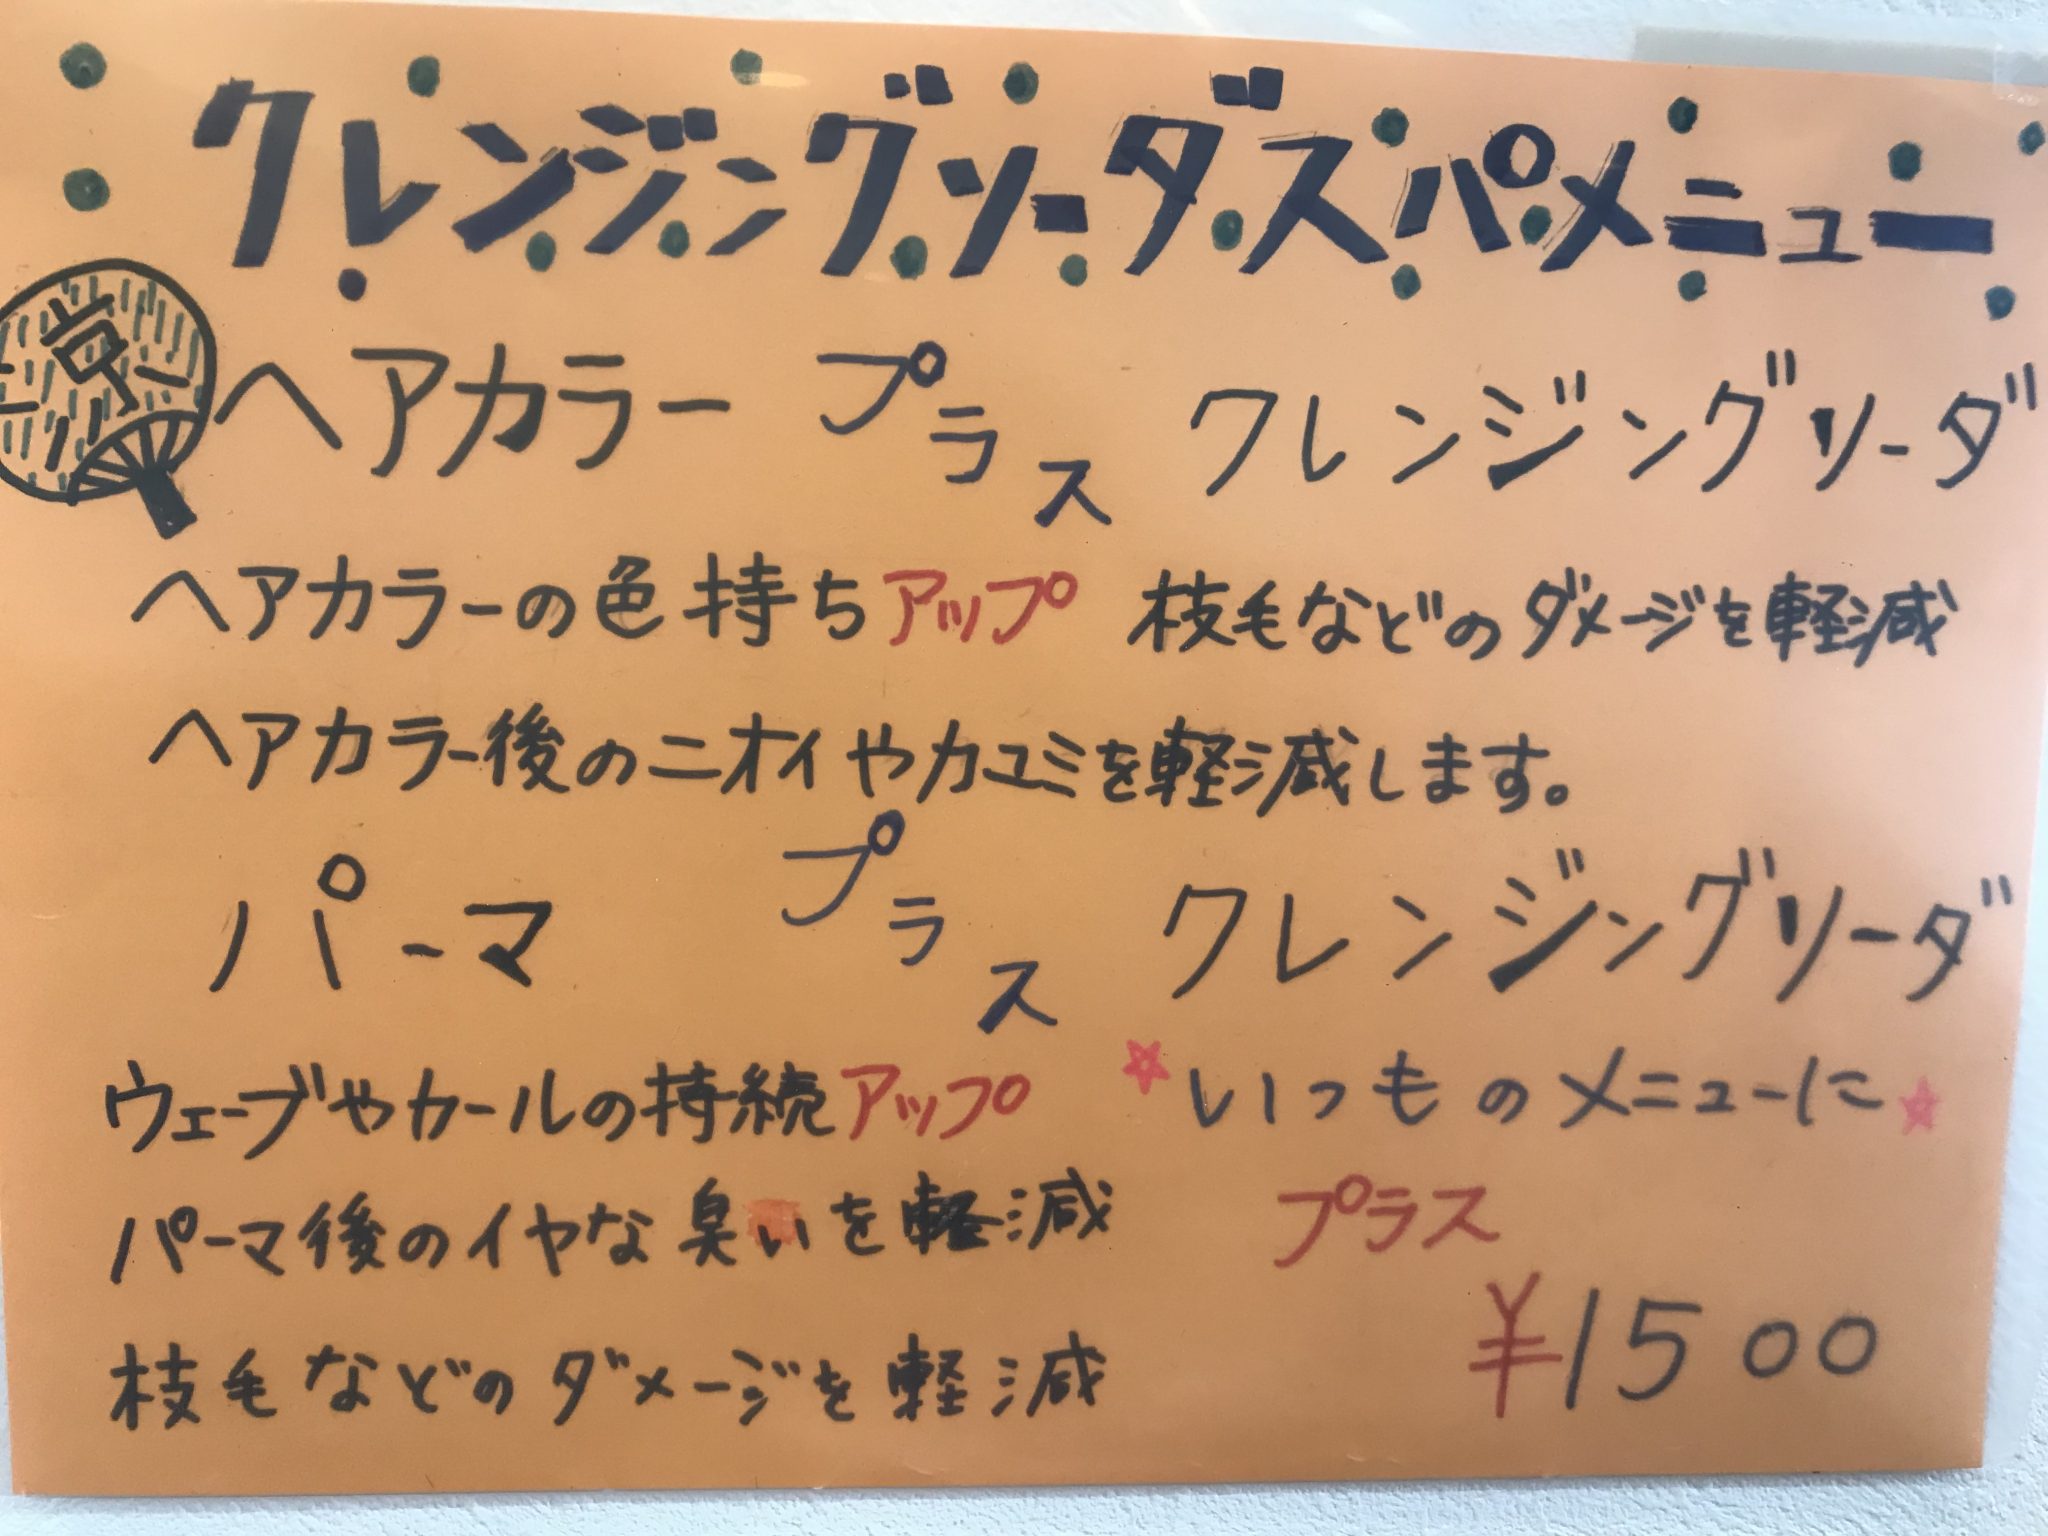 クレンジングソーダスパメニュー
ヘアカラー プラス クレンジングソーダ
ヘアカラーの色持ちアップ 枝毛などのダメージを軽減
ヘアカラー後のニオイやカユミを軽減します。
パーマ プラス クレンジングソーダ
ウェーブやカールの持続アップ
パーマ後のイヤな臭いを軽減
枝毛などのダメージを軽減
いつものメニューに
プラス
¥1500